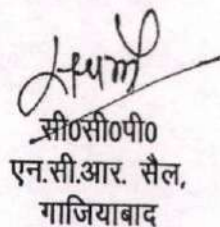 सी०सी०पी०
एन.सी.आर. सैल,
गाजियाबाद